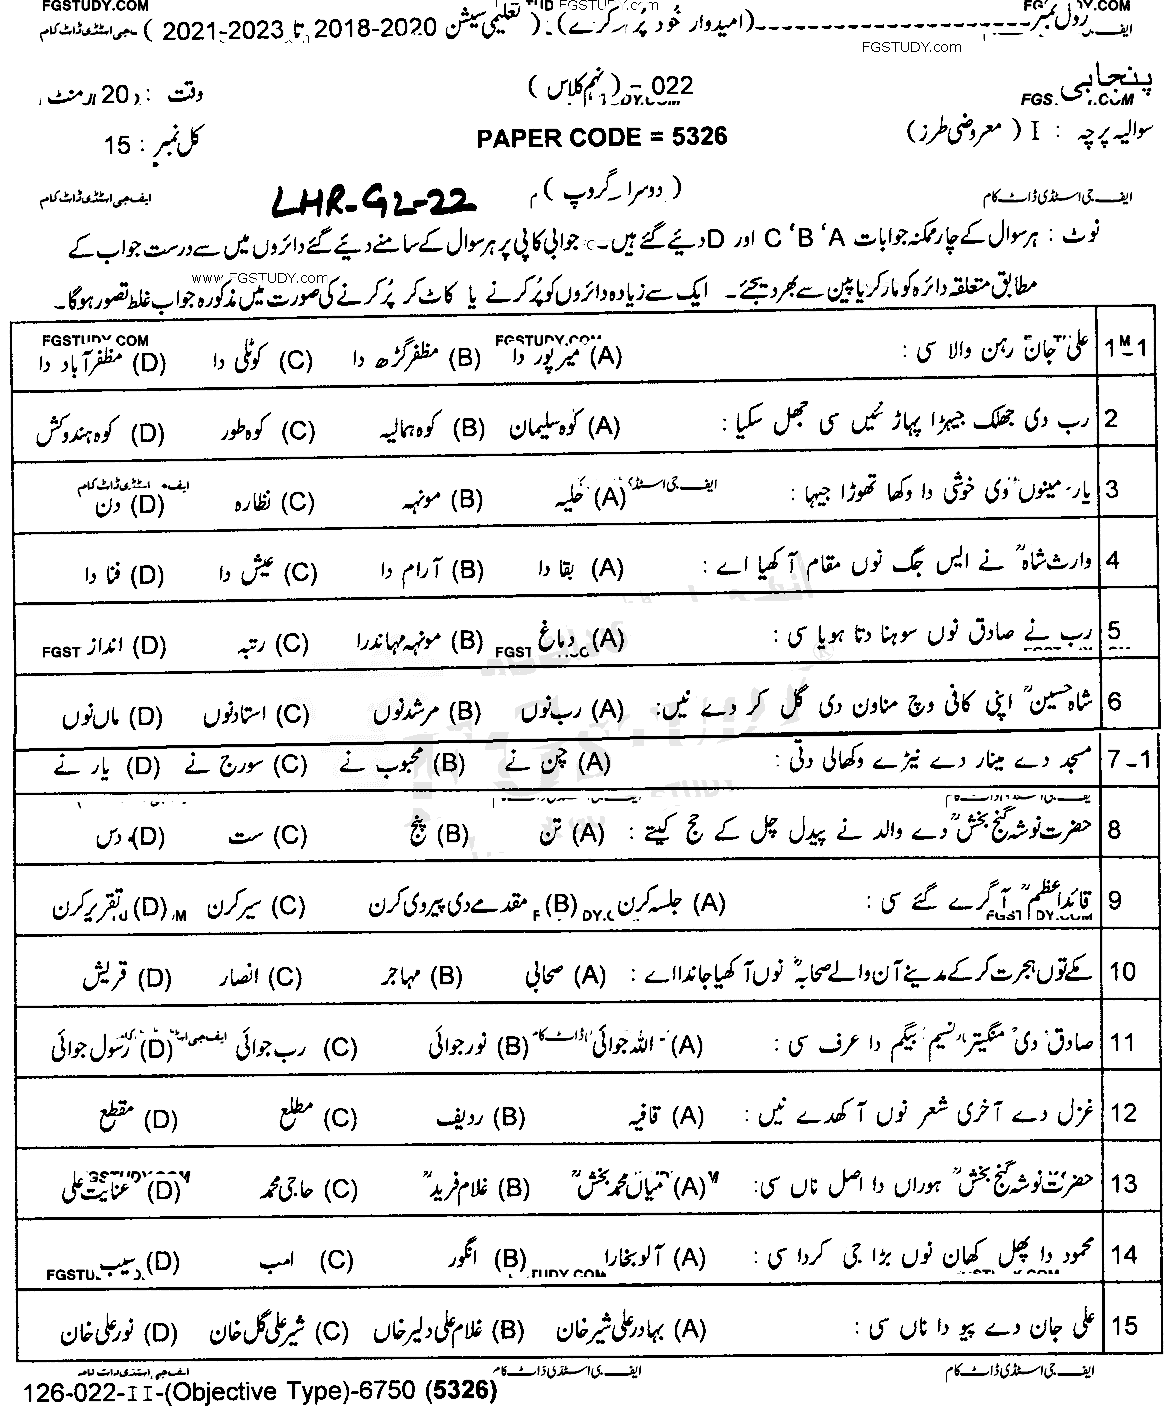 FGSTUDY.COM
رول نمبر ---------------(امیدوار خود پُر کرے) ( تعلیمی سیشن 2020-2018 تا 2023-2021 ) ایف جی اسٹڈی ڈاٹ کام
FGSTUDY.COM
پنجابی 022 - (نہم کلاس) وقت : 20 منٹ
سوالیہ پرچہ : I ( معروضی طرز) PAPER CODE = 5326 کل نمبر : 15
ایف جی اسٹڈی ڈاٹ کام ( دوسرا گروپ ) LHR-G2-22 ایف جی اسٹڈی ڈاٹ کام
نوٹ : ہر سوال کے چار ممکنہ جوابات A ، B ، C اور D دیئے گئے ہیں۔ جوابی کاپی پر ہر سوال کے سامنے دیئے گئے دائروں میں سے درست جواب کے
مطابق متعلقہ دائرہ کو مارکر یا پین سے بھر دیجئے۔ ایک سے زیادہ دائروں کو پُر کرنے یا کاٹ کر پُر کرنے کی صورت میں مذکورہ جواب غلط تصور ہوگا۔
www.FGSTUDY.com
1-1 علی جان رہن والا سی : (A) میرپور دا (B) مظفر گڑھ دا (C) کوٹلی دا (D) مظفر آباد دا
2 رب دی جھلک جیہڑا پہاڑ نئیں سی جھل سکیا : (A) کوہ سلیمان (B) کوہ ہمالیہ (C) کوہ طور (D) کوہ ہندوکش
3 یار مینوں وی خوشی دا وکھا تھوڑا جیہا : (A) حلیہ (B) مونہہ (C) نظارہ (D) دن
4 وارث شاہؒ نے ایس جگ نوں مقام آکھیا اے : (A) بقا دا (B) آرام دا (C) عیش دا (D) فنا دا
5 رب نے صادق نوں سوہنا دتا ہویا سی : (A) دماغ (B) مونہہ مہاندرا (C) رتبہ (D) انداز
6 شاہ حسینؒ اپنی کافی وچ مناون دی گل کر دے نیں: (A) رب نوں (B) مرشد نوں (C) استاد نوں (D) ماں نوں
7-1 مسجد دے مینار دے نیڑے وکھالی دتی : (A) چن نے (B) محبوب نے (C) سورج نے (D) یار نے
8 حضرت نوشہ گنج بخشؒ دے والد نے پیدل چل کے حج کیتے : (A) تن (B) پنج (C) ست (D) دس
9 قائداعظمؒ آگرے گئے سی : (A) جلسہ کرن (B) مقدمے دی پیروی کرن (C) سیر کرن (D) تقریر کرن
10 مکے توں ہجرت کر کے مدینے آن والے صحابہؓ نوں آکھیا جاندا اے : (A) صحابی (B) مہاجر (C) انصار (D) قریش
11 صادق دی منگیتر نسیم بیگم دا عرف سی : (A) اللہ جوائی (B) نور جوائی (C) رب جوائی (D) رسول جوائی
12 غزل دے آخری شعر نوں آکھدے نیں : (A) قافیہ (B) ردیف (C) مطلع (D) مقطع
13 حضرت نوشہ گنج بخشؒ ہوراں دا اصل ناں سی: (A) میاں محمد بخشؒ (B) غلام فریدؒ (C) حاجی محمد (D) عنایت علی
14 محمود دا پھل کھان نوں بڑا جی کردا سی : (A) آلو بخارا (B) انگور (C) امب (D) سیب
15 علی جان دے پیو دا ناں سی : (A) بہادر علی شیر خان (B) غلام علی دلیر خاں (C) شیر علی گل خان (D) نور علی خان
ایف جی اسٹڈی ڈاٹ کام ایف جی اسٹڈی ڈاٹ کام ایف جی اسٹڈی ڈاٹ کام
126-022-II-(Objective Type)-6750 (5326)